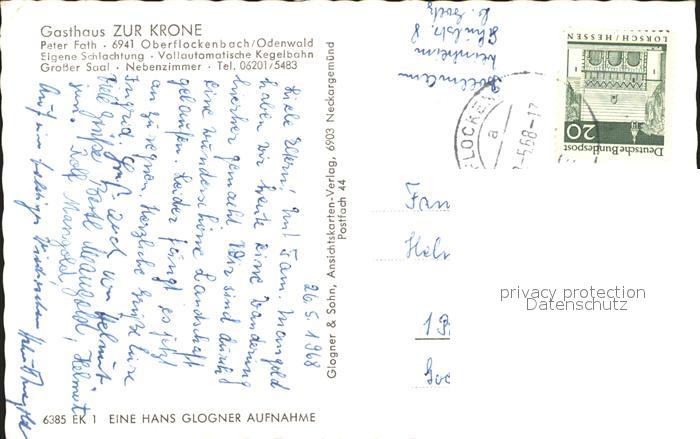 Gasthaus ZUR KRONE
Peter Fath · 6941 Oberflockenbach/Odenwald
Eigene Schlachtung · Vollautomatische Kegelbahn
Großer Saal · Nebenzimmer · Tel. 06201/5483
26.5.1968
Liebe Eltern! Mit Fam. Mangold
haben wir heute eine Wanderung
hierher gemacht. Wir sind durch
eine wunderschöne Landschaft
gelaufen. Leider fängt es jetzt
an zu regnen. Herzliche Grüße Eure
Ingrid. Gruß auch von Helmut
Viele Grüße Mangold, Helmut
jun. Rolf Mangold
Auf ein
Glogner & Sohn, Ansichtskarten-Verlag, 6903 Neckargemünd
Postfach 44
6385 EK 1 EINE HANS GLOGNER AUFNAHME
LORSCH/HESSEN
20
Deutsche Bundespost
FLOCKE
a
5.68-17
Fam
Helm
privacy protection
Datenschutz